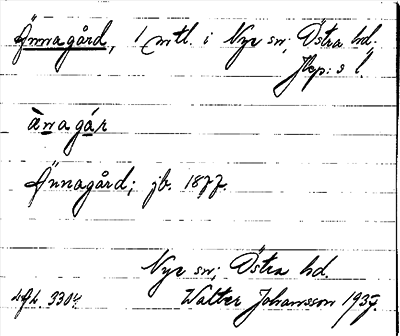 Önnagård, 1 mtl. i Nye sn; Östra hd.
Jkp:s l.
ànagár
Önnagård; jb. 1877.
Nye sn; Östra hd.
Walter Johansson 1937.